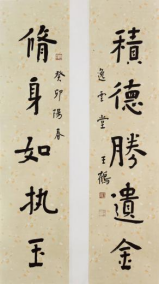 積德勝遺金
逸雲堂王鶴
脩身如执玉
癸卯陽春